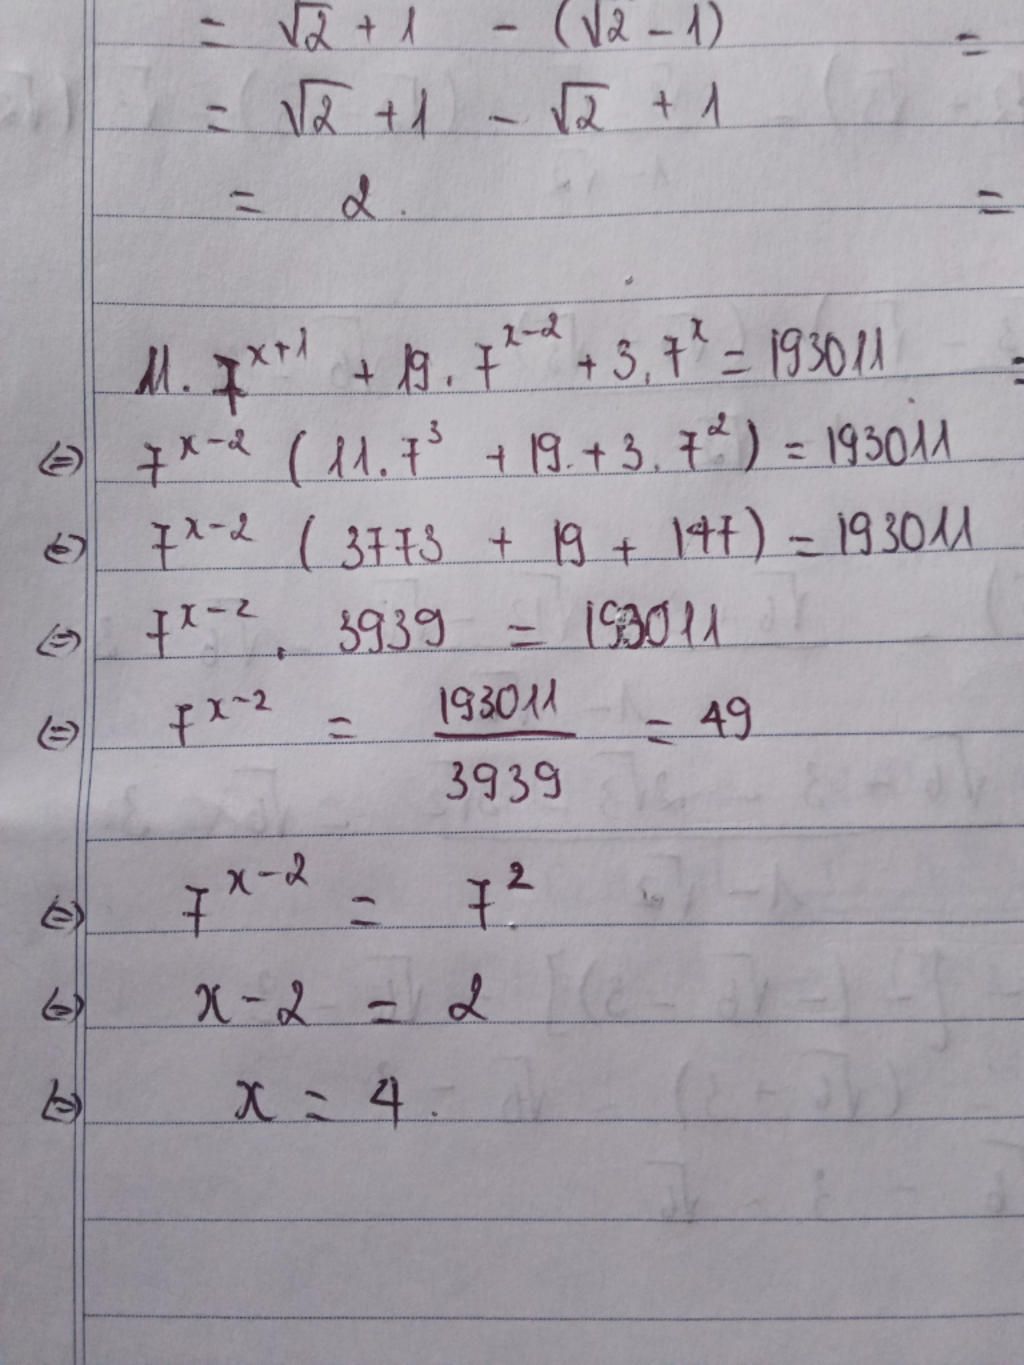 = √2 + 1 - (√2 - 1) =
= √2 + 1 - √2 + 1
= 2. =
11. 7^{x+1} + 19. 7^{x-2} + 3. 7^x = 193011 =
(=) 7^{x-2} ( 11. 7^3 + 19. + 3. 7^2 ) = 193011
(=) 7^{x-2} ( 3773 + 19 + 147 ) = 193011
(=) 7^{x-2} . 3939 = 193011
(=) 7^{x-2} = \frac{193011}{3939} = 49
(=) 7^{x-2} = 7^2.
(=) x - 2 = 2
(=) x = 4.